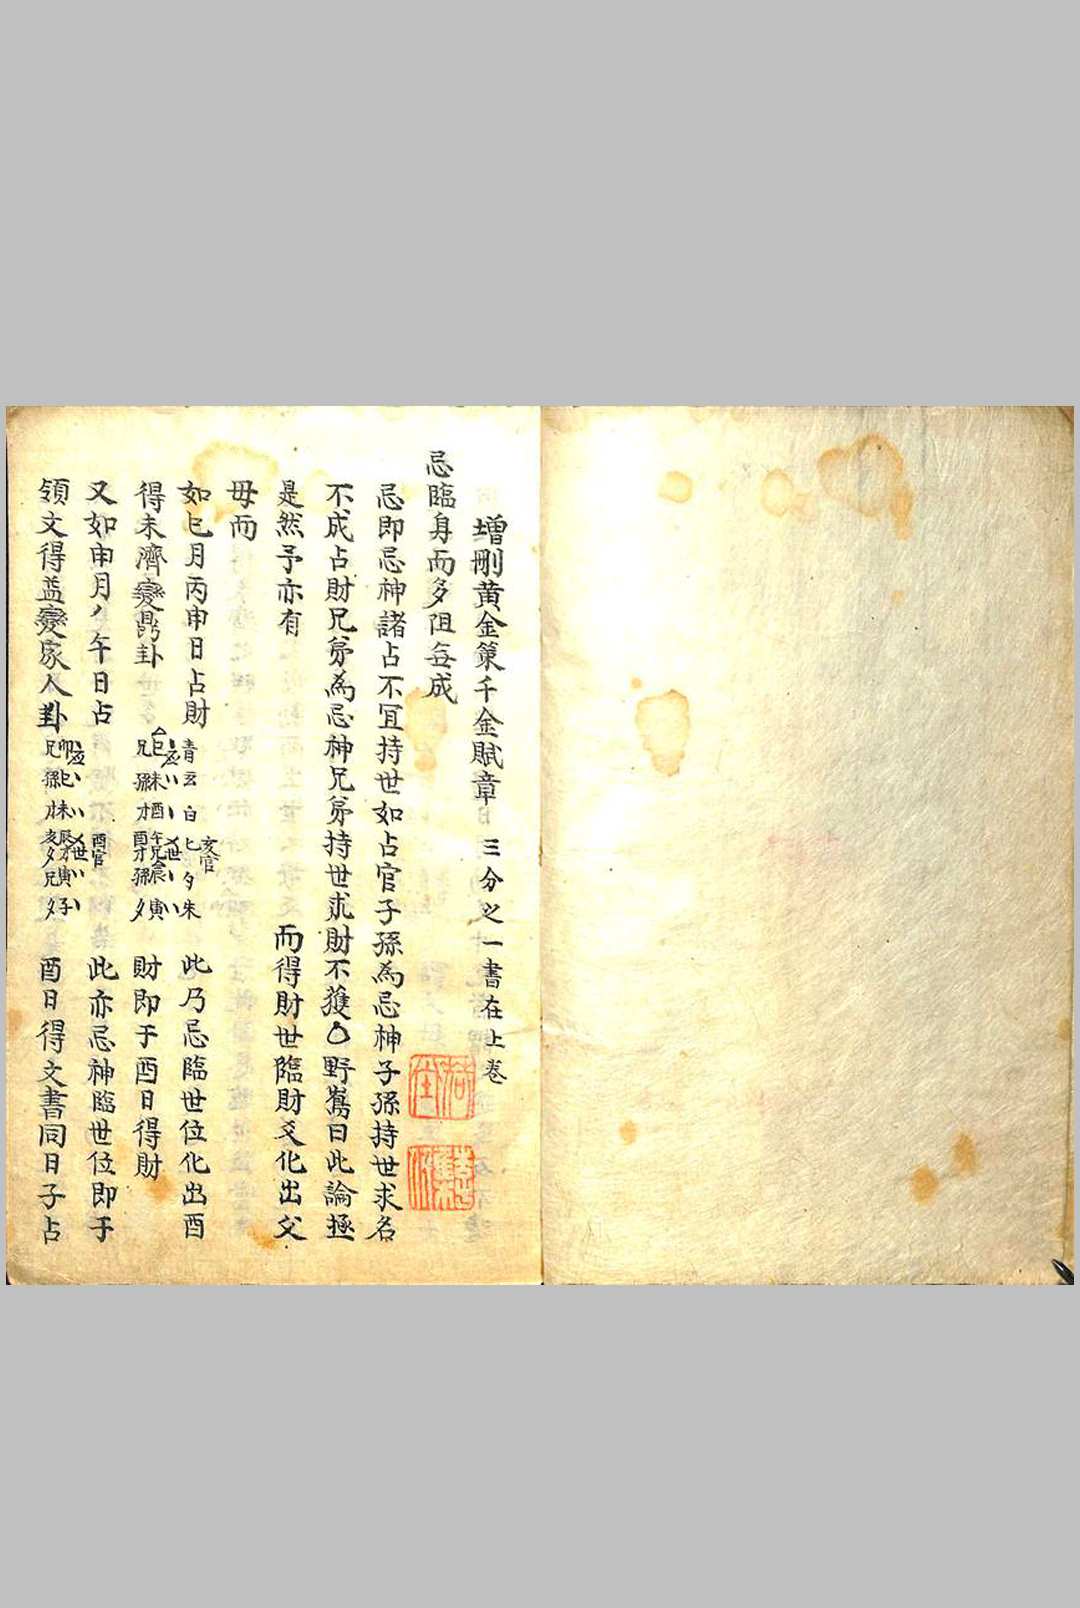 增刪黃金策千金賦章 三分之一書在上卷
忌臨身而多阻每成
忌即忌神諸占不宜持世如占官子孫為忌神子孫持世求名
不成占財兄弟為忌神兄弟持世求財不獲〇野鶴曰此論極
是然予亦有 而得財世臨財爻化出父
毋而
如巳月丙申日占財
得未濟變鼎卦
青玄白匕夕朱
亥官
此乃忌臨世位化出酉
財即于酉日得財
又如申月丿午日占
領文得益變家人卦
酉官
此亦忌神臨世位即于
酉日得文書同日子占